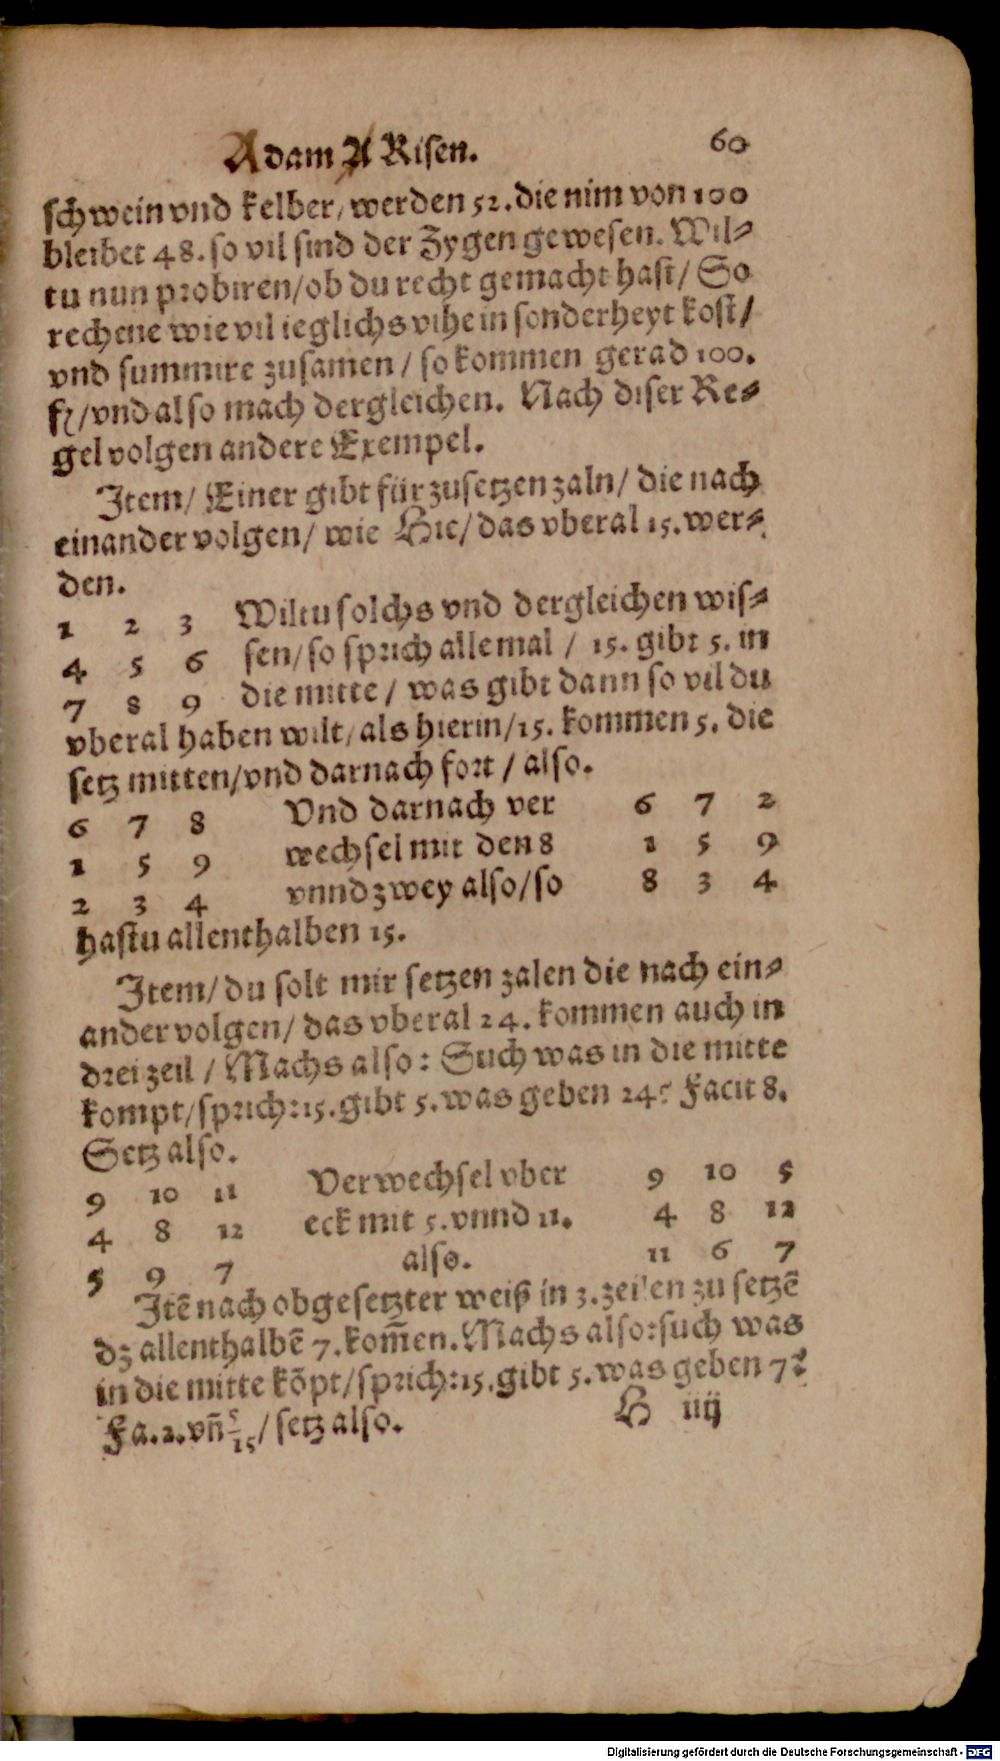 Adam A Risen. 60
schwein vnd kelber/ werden 52. die nim von 100
bleibet 48. so vil sind der Zygen gewesen. Wil⸗
tu nun probiren/ob du recht gemacht hast/ So
rechene wie vil ieglichs vihe in sonderheyt kost/
vnd summire zusamen / so kommen gerad 100.
fl/vnd also mach dergleichen. Nach diser Re⸗
gel volgen andere Exempel.
Item/ Einer gibt für zusetzen zaln/ die nach
einander volgen/ wie Hie/ das vberal 15. wer⸗
den.
1 2 3 Wiltu solchs vnd dergleichen wis⸗
4 5 6 sen/ so sprich allemal / 15. gibt 5. in
7 8 9 die mitte / was gibt dann so vil du
vberal haben wilt/ als hierin/15. kommen 5. die
setz mitten/vnd darnach fort / also.
6 7 8 Vnd darnach ver 6 7 2
1 5 9 wechsel mit den 8 1 5 9
2 3 4 vnnd zwey also/so 8 3 4
hastu allenthalben 15.
Item/ du solt mir setzen zalen die nach ein⸗
ander volgen/ das vberal 24. kommen auch in
drei zeil / Machs also: Such was in die mitte
kompt/sprich:15. gibt 5. was geben 24? Facit 8.
Setz also.
9 10 11 Verwechsel vber 9 10 5
4 8 12 eck mit 5. vnnd 11. 4 8 12
5 9 7 also. 11 6 7
Itē nach obgesetzter weiß in 3. zeilen zu setzē
dz allenthalbē 7. kom̄en. Machs also:such was
in die mitte kōpt/sprich:15. gibt 5. was geben 7?
Fa. 2. vn̄ 5/15/ setz also. H iiij
Digitalisierung gefördert durch die Deutsche Forschungsgemeinschaft - DFG